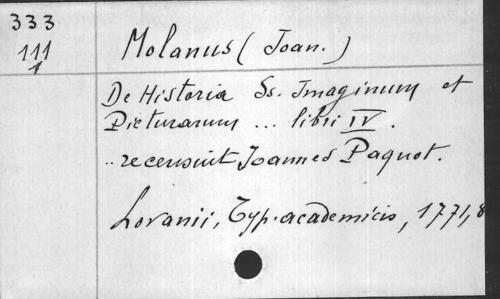 333
111
1
Molanus (Joan.)
De Historia Ss. Imaginum et
Picturarum ... libri IV.
.. recensuit Joannes Paquot.
Lovanii, Typ. academicis, 1771, 8